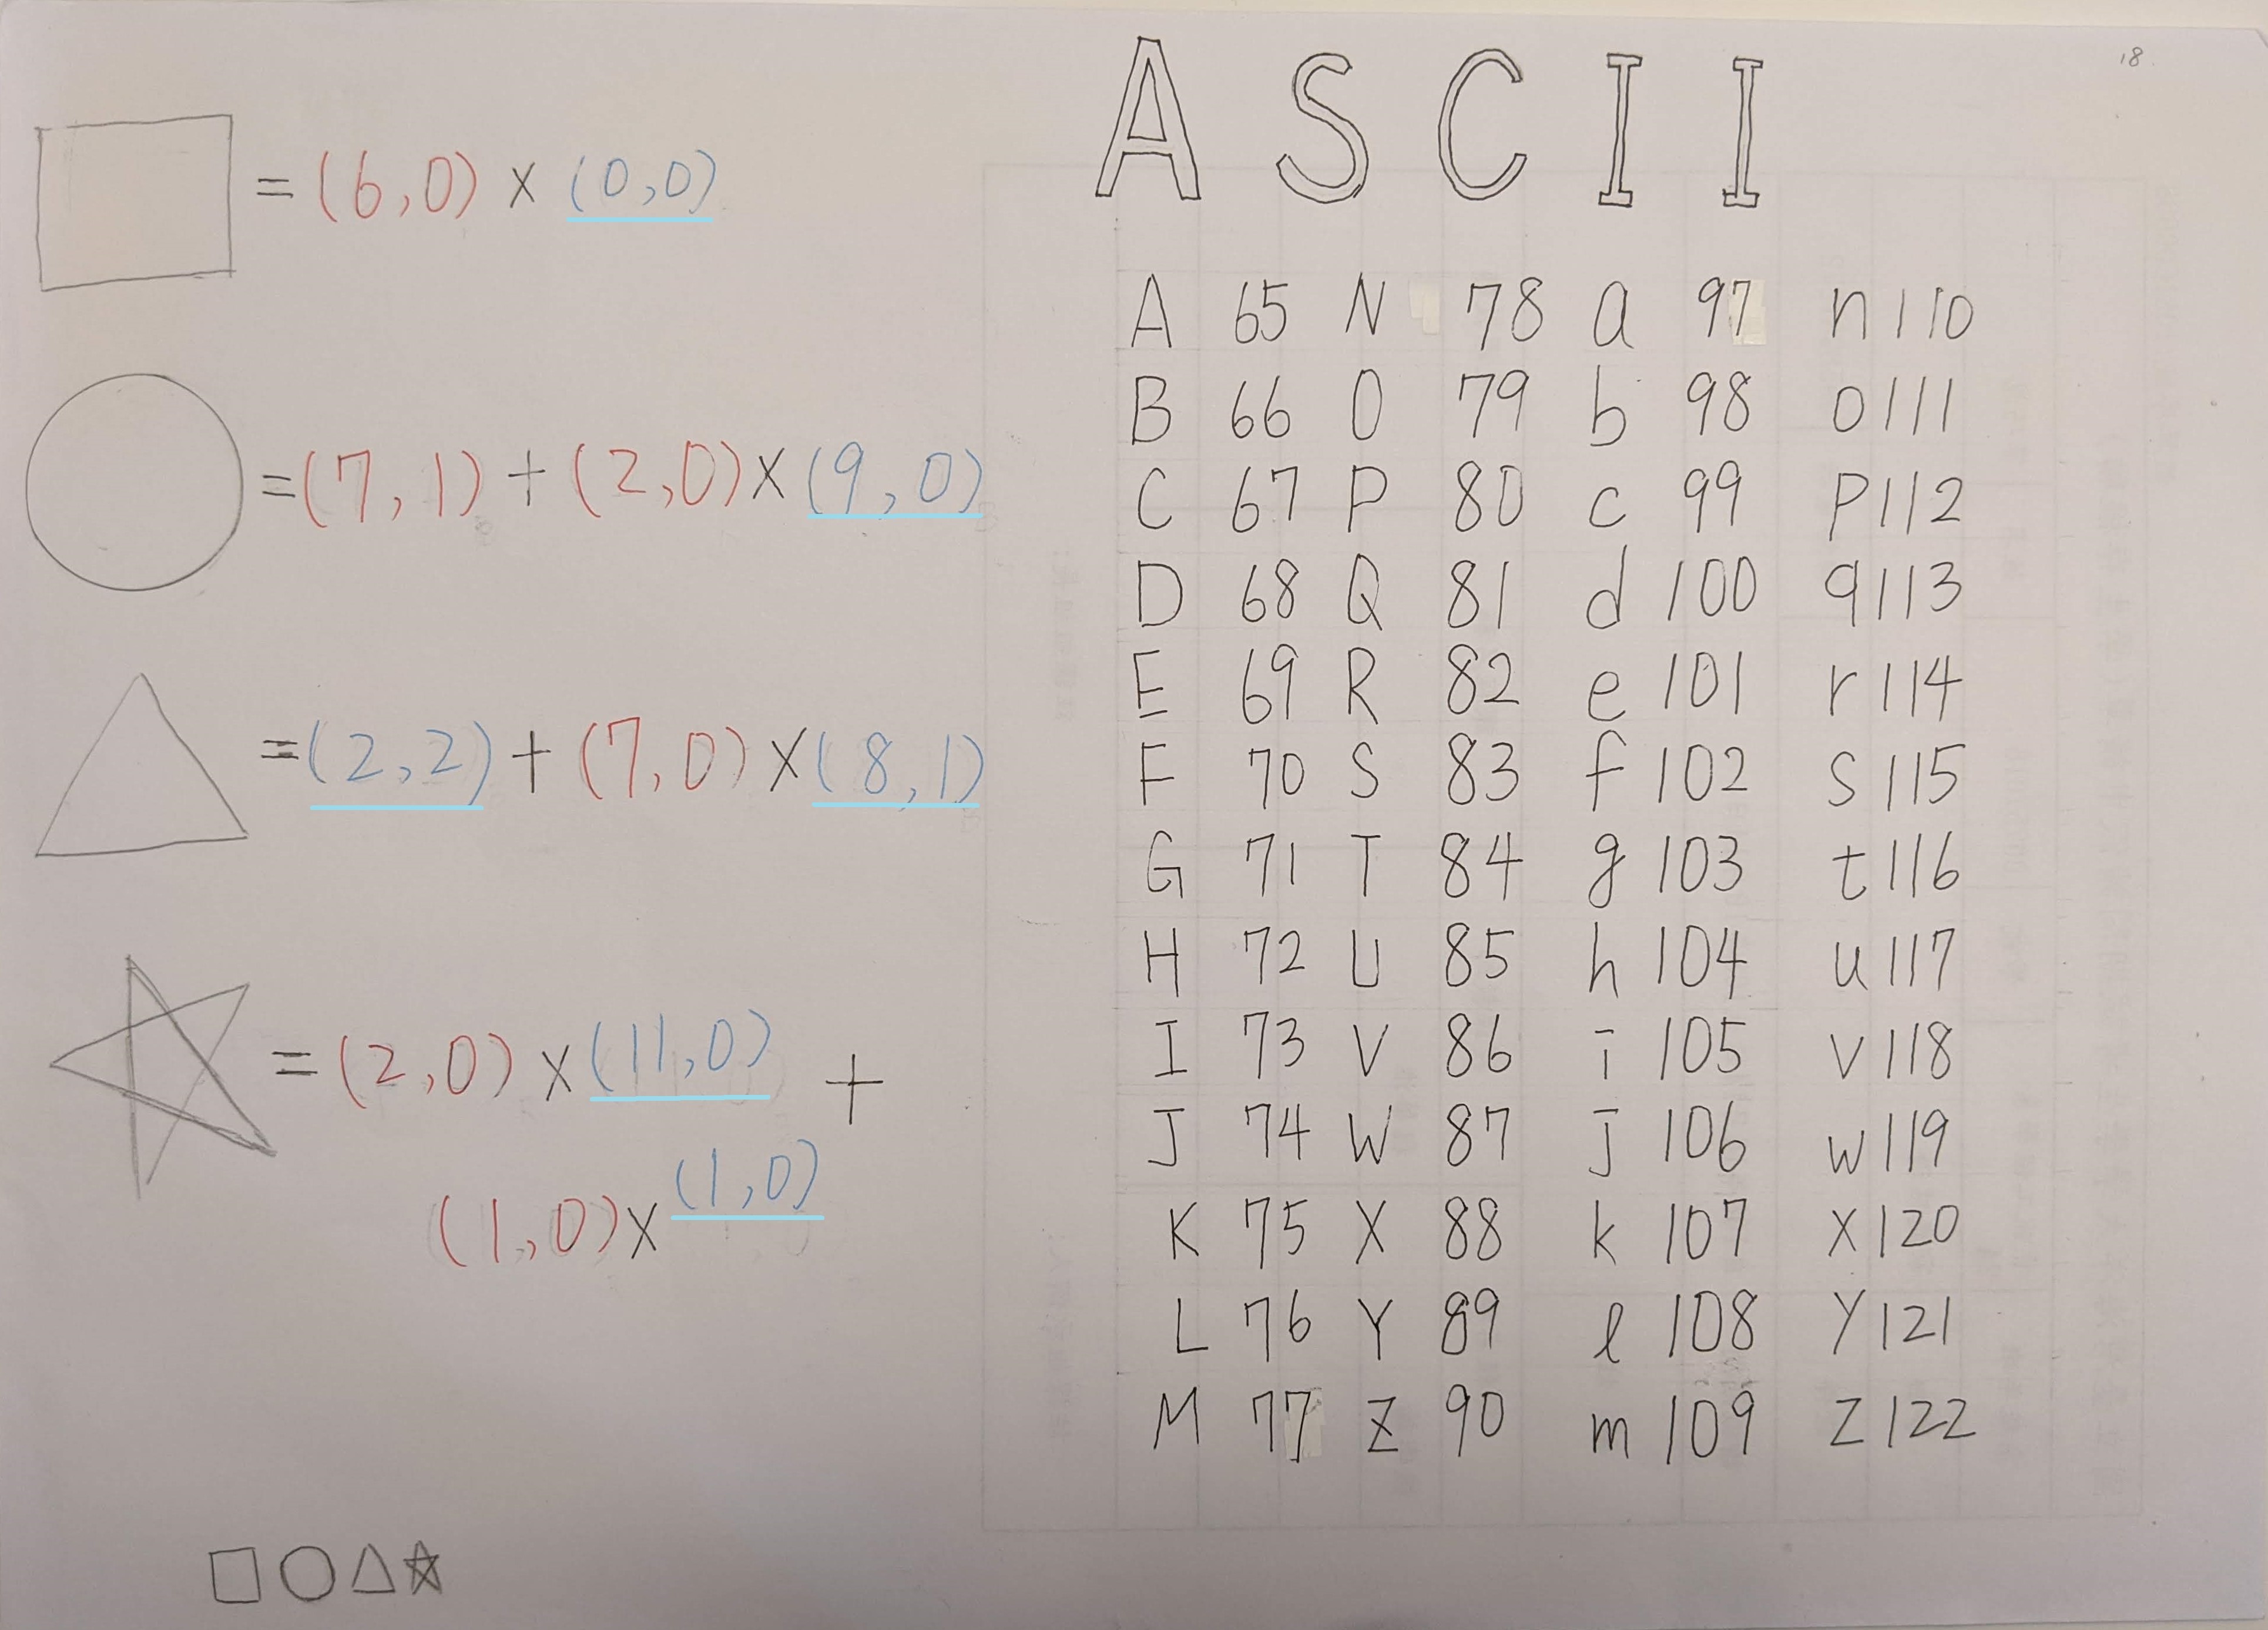 18
ASCII
= (6,0) × (0,0)
= (7,1) + (2,0) × (9,0)
= (2,2) + (7,0) × (8,1)
= (2,0) × (11,0) +
(1,0) × (1,0)
A 65 N 78 a 97 n 110
B 66 O 79 b 98 o 111
C 67 P 80 c 99 p 112
D 68 Q 81 d 100 q 113
E 69 R 82 e 101 r 114
F 70 S 83 f 102 s 115
G 71 T 84 g 103 t 116
H 72 U 85 h 104 u 117
I 73 V 86 i 105 v 118
J 74 W 87 j 106 w 119
K 75 X 88 k 107 x 120
L 76 Y 89 l 108 y 121
M 77 Z 90 m 109 z 122